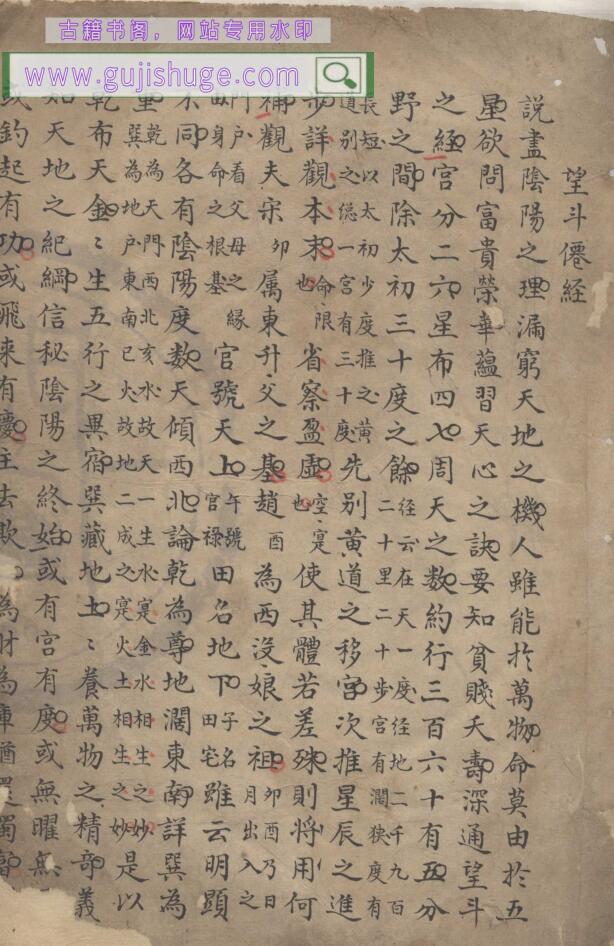 古籍书阁，网站专用水印
www.gujishuge.com
望斗僊経
說盡陰陽之理漏窮天地之機人雖能扵萬物命莫由扵五
星欲問富貴榮華蘊習天心之訣要知貧賤夭壽深通望斗
之経宮分二六星布四七周天之数約行三百六十有五分
野之間除太初三十度之餘经云在天一度经地二千九百二十里二十步宮有濶狹度有
長短以太初少度推之黄道别之縂一宮有三十度先别黄道之移宮次推星辰之進
步詳觀本末命限也省察盈虚空寔也使其體若差殊則将用何
補觀夫宋卯属東升父之基趙酉為西没娘之祖卯酉乃日月出入之
門户看父母之縁田身命之根基官號天上午號官禄田名地下子名田宅雖云明顕
不同各有陰陽度数天傾西北論乾為尊地濶東南詳巽為
里乾為天門西北亥水故天一生水寔金水相生之妙巽為地户東南巳火故地二成之寔火土相生之妙是以
乾布天金〻生五行之異宿巽藏地土〻養萬物之精竒義
如天地之紀綱信秘陰陽之終始或有宮有度或無曜無
或釣起有功或飛来有慶主去欺〻為財為庫酋